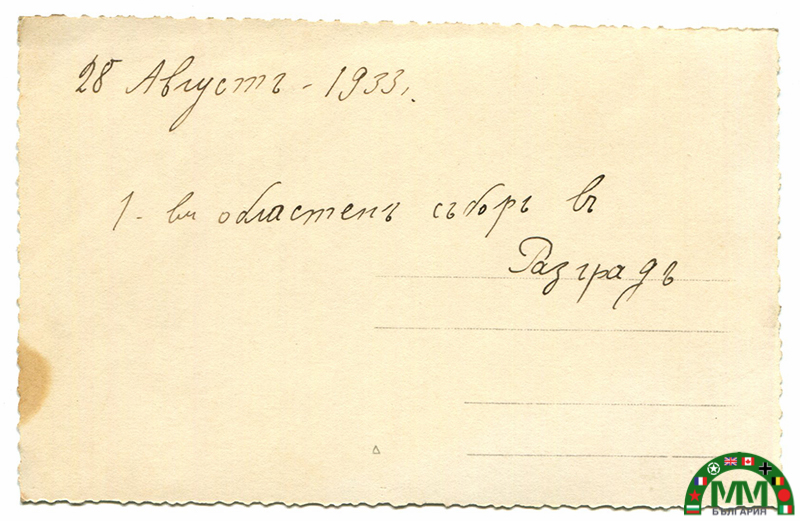 28 Августъ - 1933.
1 - въ областенъ съборъ въ
Разградъ
ММ
БЪЛГАРИЯ